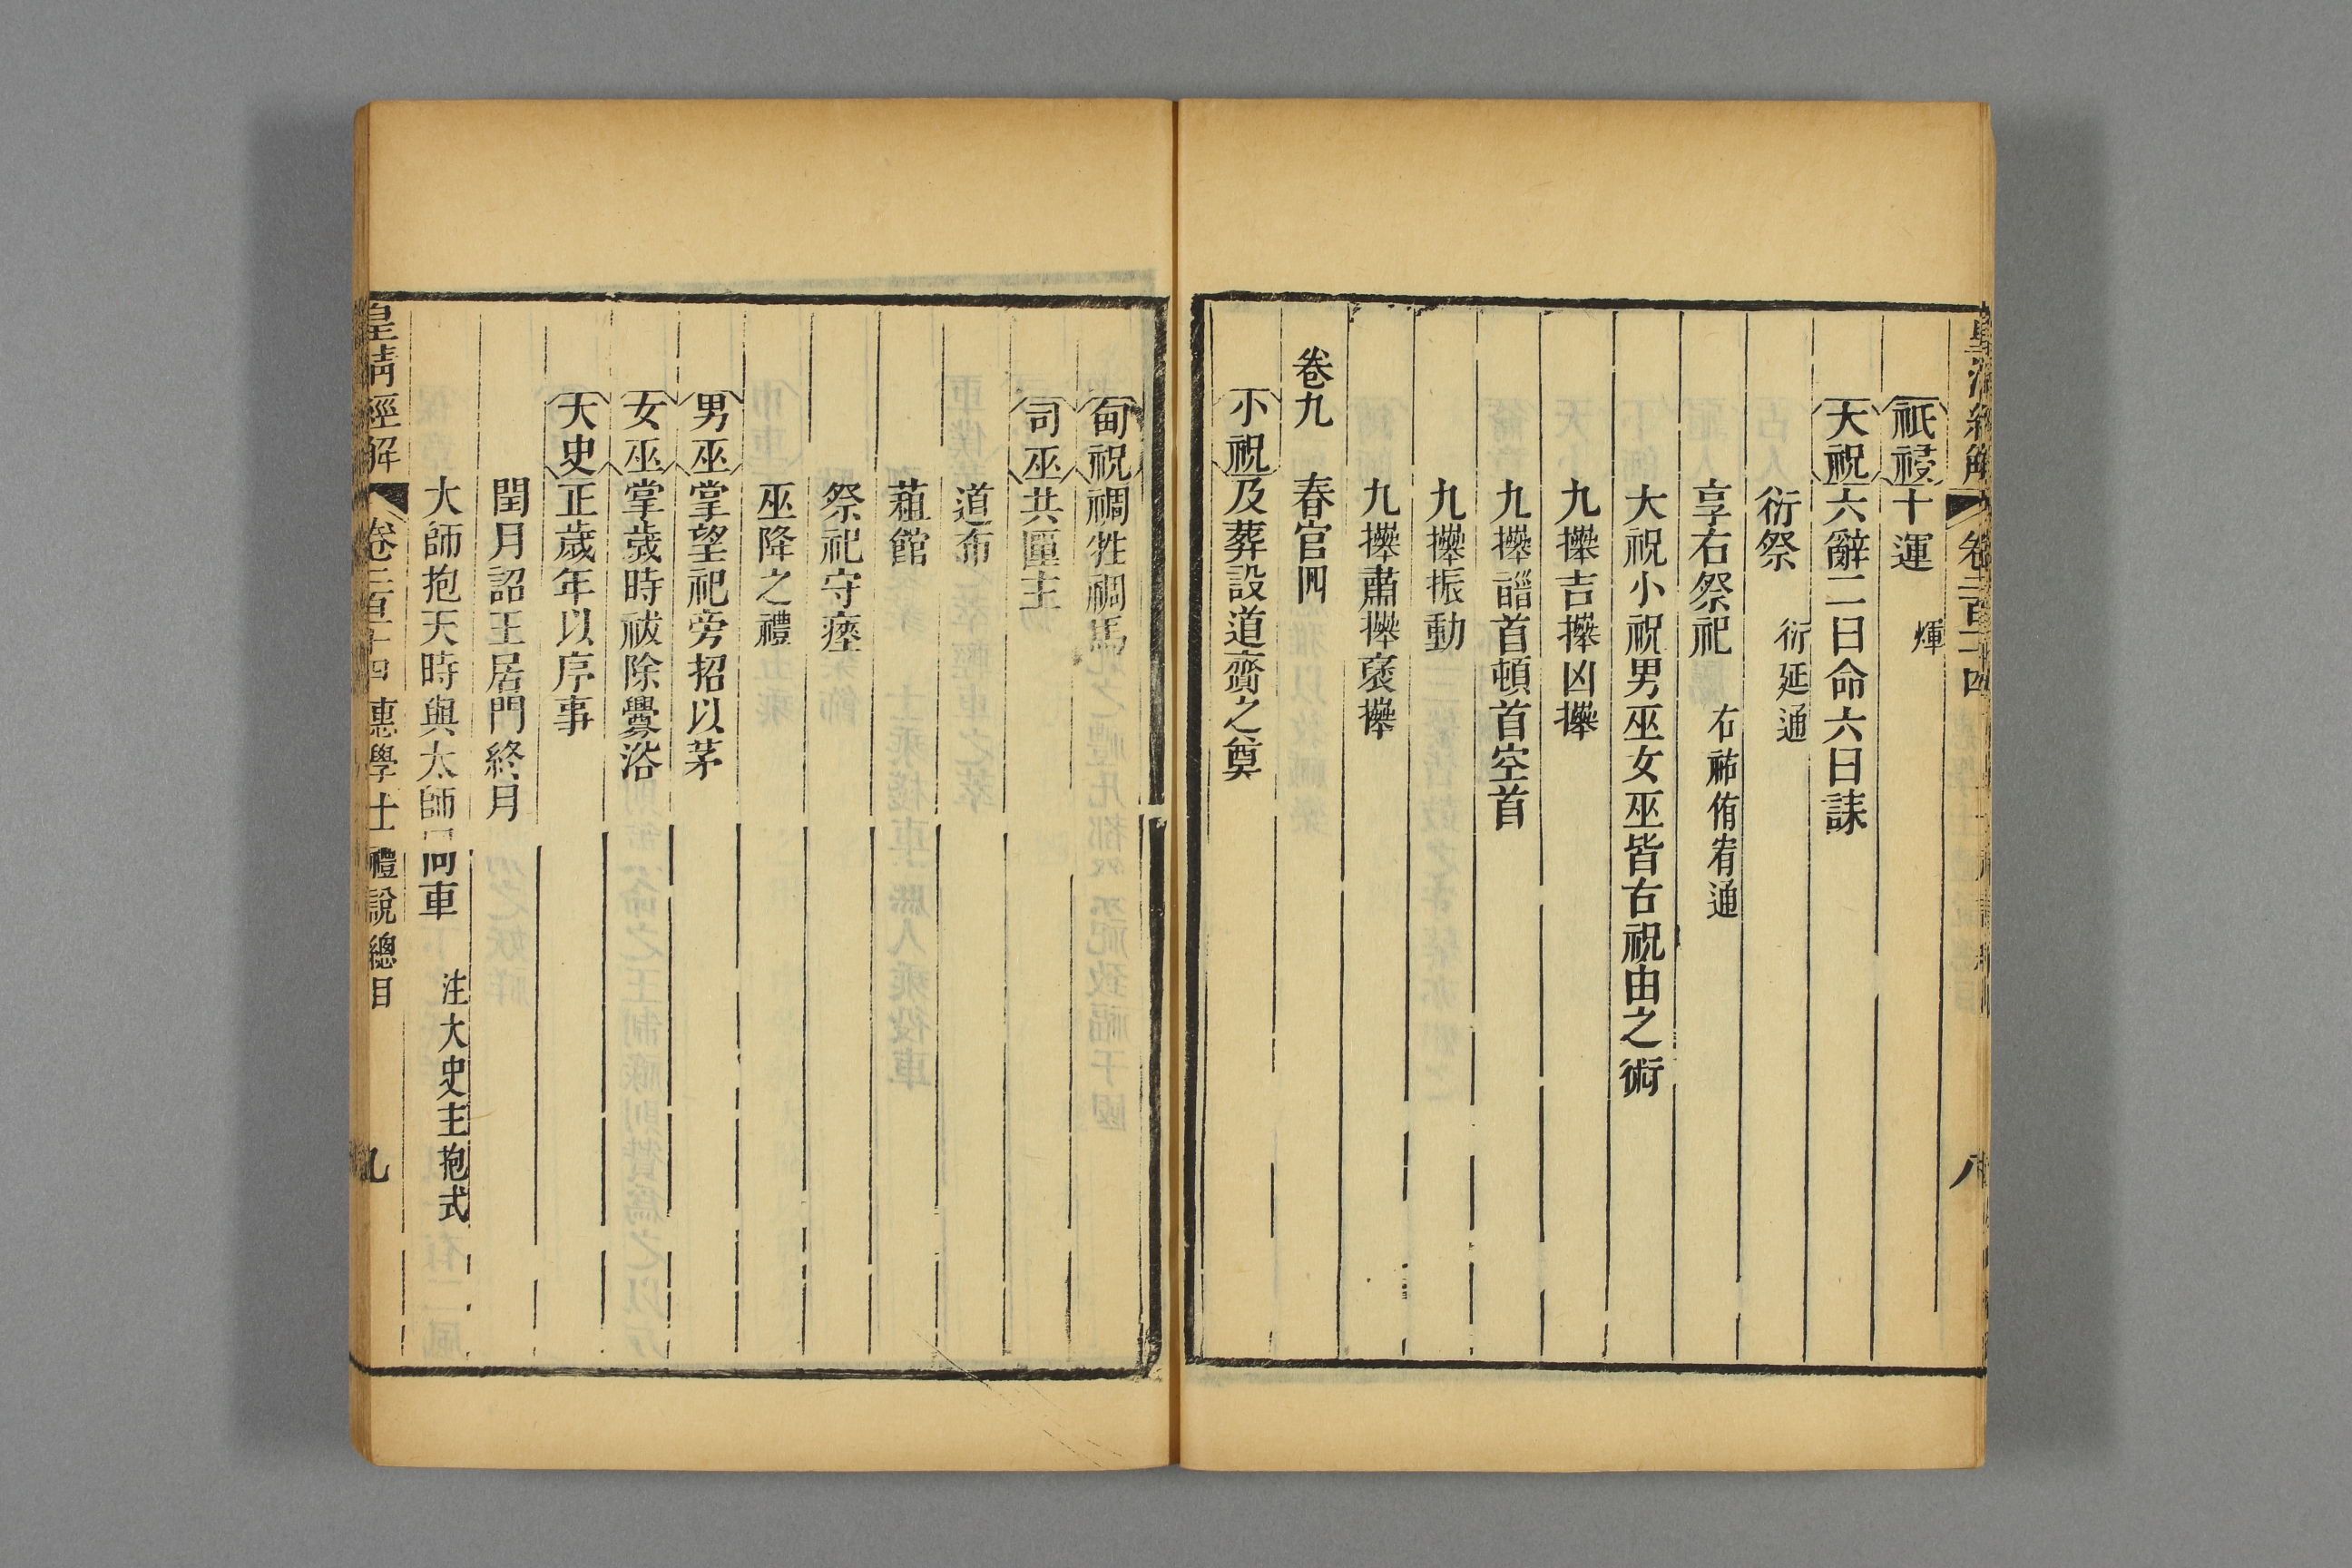 皇清經解 卷二百十四 八
眡祲十運 煇
大祝六辭二曰命六曰誄
衍祭 衍延通
享右祭祀 右祐侑宥通
大祝小祝男巫女巫皆右祝由之術
九𢷎吉𢷎凶𢷎
九𢷎䭫首頓首空首
九𢷎振動
九𢷎肅𢷎襃𢷎
卷九 春官四
小祝及葬設道齎之奠
甸祝禂牲禂馬
司巫共匰主
道布
蒩館
祭祀守瘞
巫降之禮
男巫掌望祀旁招以茅
女巫掌歲時祓除釁浴
大史正歲年以序事
閏月詔王居門終月
大師抱天時與太師同車 注大史主抱式
皇清經解 卷二百十四 惠學士禮說總目 九